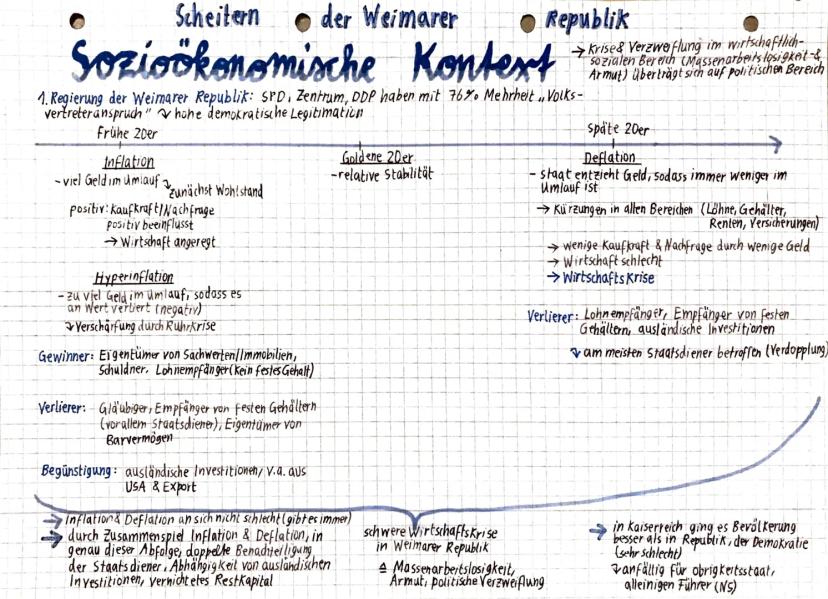 Scheitern der Weimarer Republik
Sozioökonomische Kontext
→ Krise & Verzweflung im wirtschaftlich-
sozialen Bereich (Massenarbeitslosigkeit &
Armut) überträgt sich auf politischen Bereich
1. Regierung der Weimarer Republik: SPD, Zentrum, DDP haben mit 76% Mehrheit „Volks-
vertreteranspruch" ↳ hohe demokratische Legitimation
Frühe 20er
Inflation
- viel Geld im Umlauf ↳ zunächst Wohlstand
positiv: Kaufkraft/Nachfrage
positiv beeinflusst
→ Wirtschaft angeregt
Hyperinflation
- zu viel Geld im Umlauf, sodass es
an Wert verliert (negativ)
↳ Verschärfung durch Ruhrkrise
Gewinner: Eigentümer von Sachwerten/Immobilien,
Schuldner, Lohnempfänger (kein festes Gehalt)
Verlierer: Gläubiger, Empfänger von festen Gehältern
(vor allem Staatsdiener), Eigentümer von
Barvermögen
Begünstigung: ausländische Investitionen, v.a. aus
USA & Export
Goldene 20er
- relative Stabilität
späte 20er
Deflation
- Staat entzieht Geld, sodass immer weniger im
Umlauf ist
→ Kürzungen in allen Bereichen (Löhne, Gehälter,
Renten, Versicherungen)
→ wenige Kaufkraft & Nachfrage durch wenige Geld
→ Wirtschaft schlecht
→ Wirtschaftskrise
Verlierer: Lohnempfänger, Empfänger von festen
Gehältern, ausländische Investitionen
↳ am meisten Staatsdiener betroffen (Verdopplung)
→ Inflation & Deflation an sich nicht schlecht (gibt es immer)
→ durch Zusammenspiel Inflation & Deflation, in
genau dieser Abfolge, doppelte Benachteiligung
der Staatsdiener, Abhängigkeit von ausländischen
Investitionen, vernichtetes Restkapital
schwere Wirtschaftskrise
in Weimarer Republik
≙ Massenarbeitslosigkeit,
Armut, politische Verzweiflung
→ in Kaiserreich ging es Bevölkerung
besser als in Republik, der Demokratie
(sehr schlecht)
↳ anfällig für Obrigkeitsstaat,
alleinigen Führer (NS)